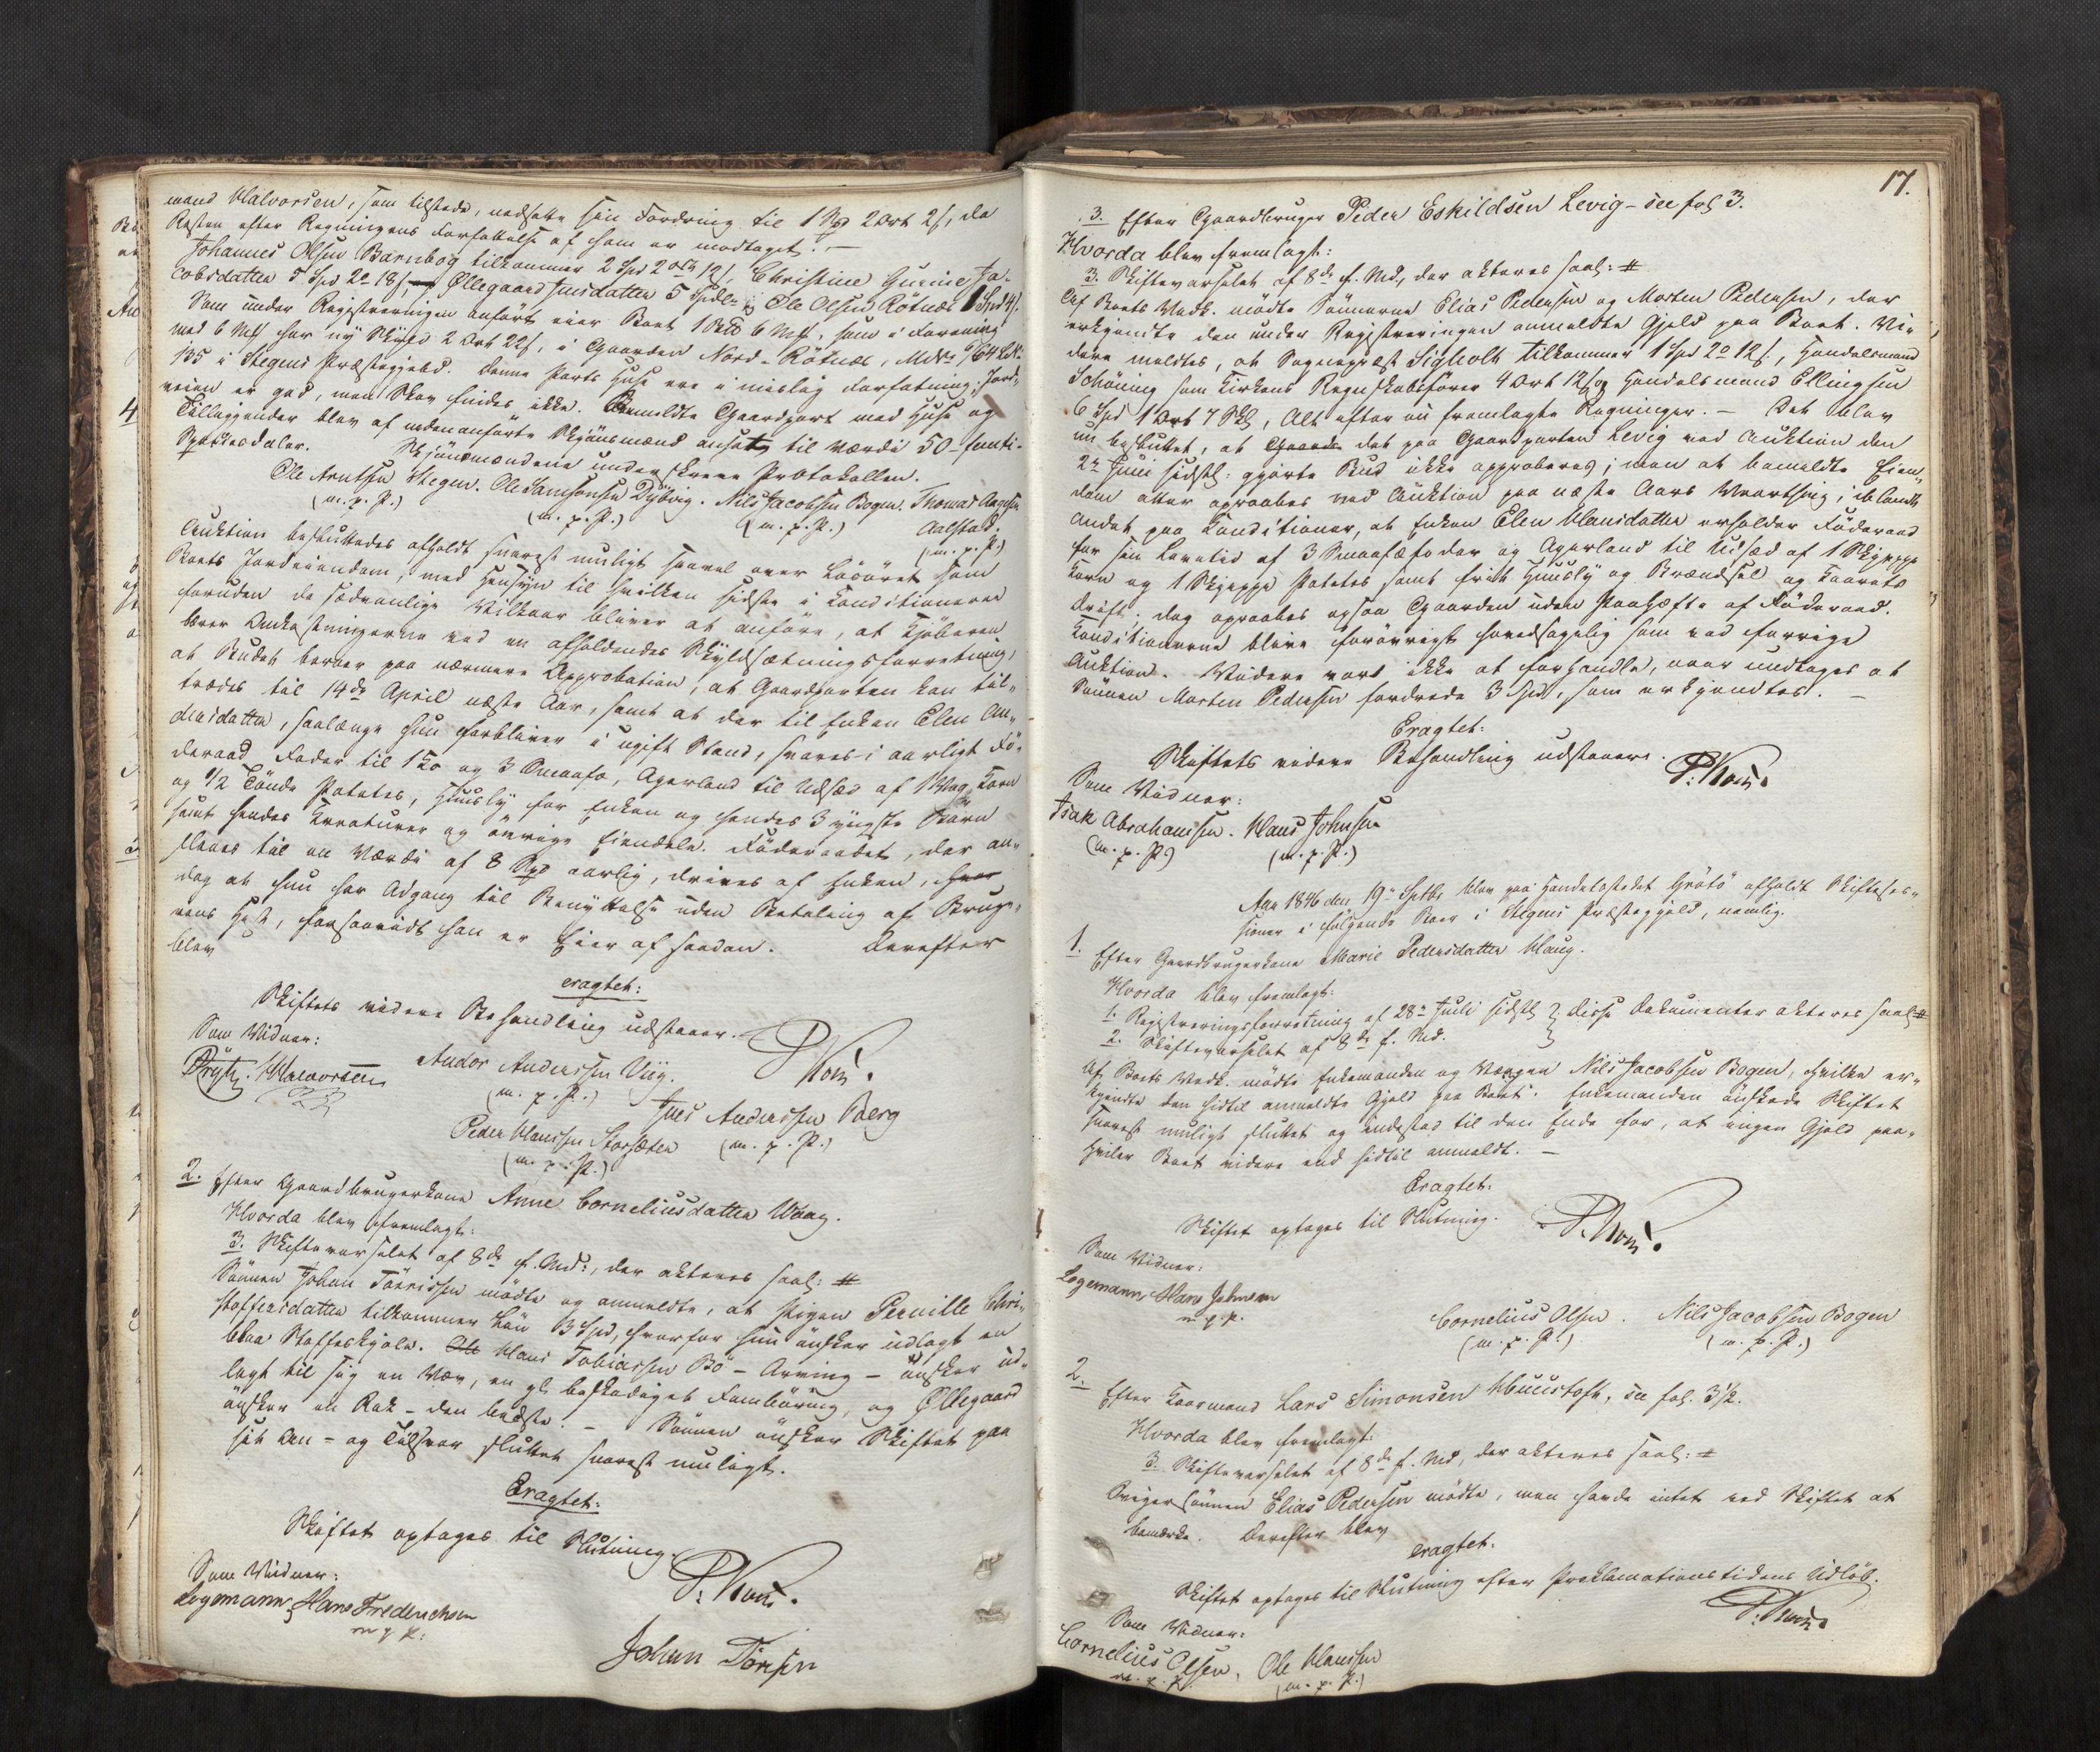 mand Halvorsen, som tilstede, nedsatte sin Fordring til 1 Spd 2 Ort 2 s, da
Resten efter Regningens Forfattelse af ham er modtaget. —
Johannes Olsen Barnbog tilkommer 2 Spd 2 ort 12 s, Christine Gurine Ja-
cobsdatter 5 Spd 2 o 18 s, Øllegaard Jensdatter 5 Spdlr og Ole Olsen Rötnes 1 Spd 4 s.
Som under Registreringen anført eier Boet 1 6 Mk, som i Forening
med 6 Mk har ny Skyld 2 Ort 22 s, i Gaarden Nord-Rötnes, M. No 64 L. No
135 i Stegens Præstegjeld. Denne Parts Huse ere i maadelig Forfatning; Jord-
veien er god, men Skov findes ikke. Anmeldte Gaardpart med Huse og
Tilliggender blev af nedenanførte Skjønsmænd ansat til Værdi 50 - femti -
Speciesdaler. Skjönsmændene underskreve Protokollen.
Ole Arntsen Stegen. Ole Samsonsen Dyping. Nils Jacobsen Bogen. Thomas Aagesen
(m. p. P.) (m. p. P.) (m. p. P.) Aalstad.
(m. p. P.)
Auktion besluttedes afholdt snarest muligt saavel over Løsöret som
Boets Jordeiendom, med Hensyn til hvilken sidste i Konditionerne
foruden de sædvanlige Vilkaar bliver at anføre, at Kjöberen
bærer Omkostningerne ved en afholdendes Skyldsætningsforretning,
at Budet beroer paa nærmere Approbation, at Gaardparten kan til-
trædes til 14de April næste Aar, samt at der til Enken Elen An-
dreasdatter, saalænge hun forbliver i ugift Stand, svares i aarligt Fö-
deraad Foder til 1 Ko og 3 Smaafæ, Agerland til Udsæd af 1 Vog Korn
og 1/2 Tönde Potetes, Huusly for Enken og hendes 3 yngste Börn
samt hendes Kreaturer og övrige Eiendele. Föderaadet, der an-
slaaes til en Værdi af 8 Spd aarlig, drives af Enken,
dog at hun har Adgang til Benyttelse uden Betaling af Bruge-
rens Hest, forsaavidt han er Eier af saadan. Derefter
blev
eragtet:
Skiftets videre Behandling udstaaer.
Som Vidner: P. Koni.
Halvorsen Andor Anderssen Viig.
(m. p. P.) Jens Anderssen Berg
Peder Hanssen Storsæter (m. p. P.)
(m. p. P.)
2. Efter Gaardbrugerkone Anne Corneliusdatter Waag.
Hvorda blev fremlagt:
3. Skiftevarselet af 8de f. Md:, der akteres saal: #
Sönnen Johan Törrissen mödte og anmeldte, at Pigen Pernille Chri-
stoffersdatter tilkommer Lön 3 Spd, hvorfor hun önsker udlagt en
blaa Stoffeskjole. Hans Tobiassen Bö - Arving - önsker ud-
lagt til sig en Væv, en gl. beskadiget Fembøring, og Øllegaard
önsker en Rok - den bedste. - Sönnen önsker Skiftet paa
sit An- og Tilsvar sluttet snarest muligt.
Eragtet:
Skiftet optages til Slutning.
Som Vidner: P. Koni.
Logemann, Hans Frederichsen
m p P.
Johan Törisen
17.
3. Efter Gaardbruger Peder Eskildsen Levig - see fol 3.
Hvorda blev fremlagt:
3. Skiftevarselet af 8de f. Md., der akteres saal: #
Af Boets Vedk. mödte Sönnerne Elias Pedersen og Morten Pedersen, der
erkjendte den under Registreringen anmeldte Gjeld paa Boet. Vi-
dere meldtes, at Sogneprest Sigholt tilkommer 1 Spd 2 o 12 s., Handelsmand
Schöning som Kirkens Regnskabsfører 4 Ort 12 s og Handelsmand Ellingsen
6 Spd 1 Ort 7 Skl, Alt efter nu fremlagte Regninger. - Det blev
nu besluttet, at det paa Gaardparten Levig ved Auktion den
2de Juni sidstl: gjorte Bud ikke approberes; men at bemeldte Eien-
dom atter opraabes ved Auktion paa næste Aars Vaarthing, iblandt
Andet paa Konditioner, at Enken Elen Hansdatter erholder Föderaad
for sin Levetid af 3 Smaafæfoder og Agerland til Udsæd af 1 Skjeppe
Korn og 1 Skjeppe Potetes samt frit Huusly og Brændsel og Kaarets
Drift; dog opraabes ogsaa Gaarden uden Paahæfte af Föderaad.
Konditionerne blive forövrigt hovedsagelig som ved forrige
Auktion. Videre vart ikke at forhandle, naar undtages at
Sönnen Morten Pedersen fordrede 3 Spd, som erkjendtes. —
Eragtet:
Skiftets videre Behandling udstaaer.
Som Vidner: P. Koni.
Isak Abrahamsen. Hans Johnsen
(m. p. P.) (m. p. P.)
Aar 1846 den 19de Septbr blev paa Handelsstedet Grötö afholdt Skifteses-
sioner i fölgende Boer i Stegens Præstegjeld, nemlig.
1. Efter Gaardbrugerkone Marie Pedersdatter Haug.
Hvorda blev fremlagt:
1. Registreringsforretning af 28de Juli sidstl } disse Dokumenter akteres saal #
2. Skiftevarselet af 8de f. Md.
Af Boets Vedk. mödte Enkemanden og Værgen Nils Jacobsen Bogen, hvilke er-
kjendte den hidtil anmeldte Gjeld paa Boet. Enkemanden önskede Skiftet
snarest muligt sluttet og indestod til den Ende for, at ingen Gjeld paa-
hviler Boet videre end hidtil anmeldt. —
Eragtet:
Skiftet optages til Slutning. P. Koni.
Som Vidner:
Logemann, Hans Johnsen
m. p. P.
Cornelius Olsen. Nils Jacobsen Bogen
(m. p. P.) (m. p. P.)
2. Efter Kaarmand Lars Simonsen, see fol. 3 1/2.
Hvorda blev fremlagt:
3. Skiftevarselet af 8de f. Md, der akteres saal: #
Svigersönnen Elias Pedersen mödte, men havde intet ved Skiftet at
bemærke. Derefter blev
eragtet:
Skiftet optages til Slutning efter Proklamationstidens Udløb.
Som Vidner: P. Koni.
Cornelius Olsen, Ole Hanssen
m. p. P. (m. p. P.)